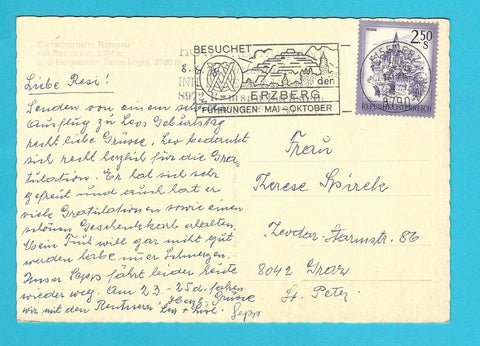 Dachsteinsüdwand Ramsau
mit Dachstein, 2004 m,
und Bergstation Hunerkogel, 2700 m
BESUCHET
den
ERZBERG
FÜHRUNGEN: MAI - OKTOBER
EISENERZ
8790
2.50
S
REPUBLIK ÖSTERREICH
Liebe Resi!
Senden von einem schönen
Ausflug zu Leos Geburtstag
recht liebe Grüsse. Leo bedankt
sich recht herzlich für die Gra-
tulation. Er hat sich sehr
gefreut und auch hat er
viele Gratulationen sowie einen
schönen Geschenkkorb erhalten.
Mein Fuß will gar nicht gut
werden habe immer Schmerzen.
Unser Sepp fährt leider heute
wieder weg. Am 23.-25. d. fahren
wir mit den Rentnern. Herzl. Grüsse
Leo +
Sepp
Frau
Therese Spirek
Theodor-Stormstr. 86
8042 Graz
St. Peter